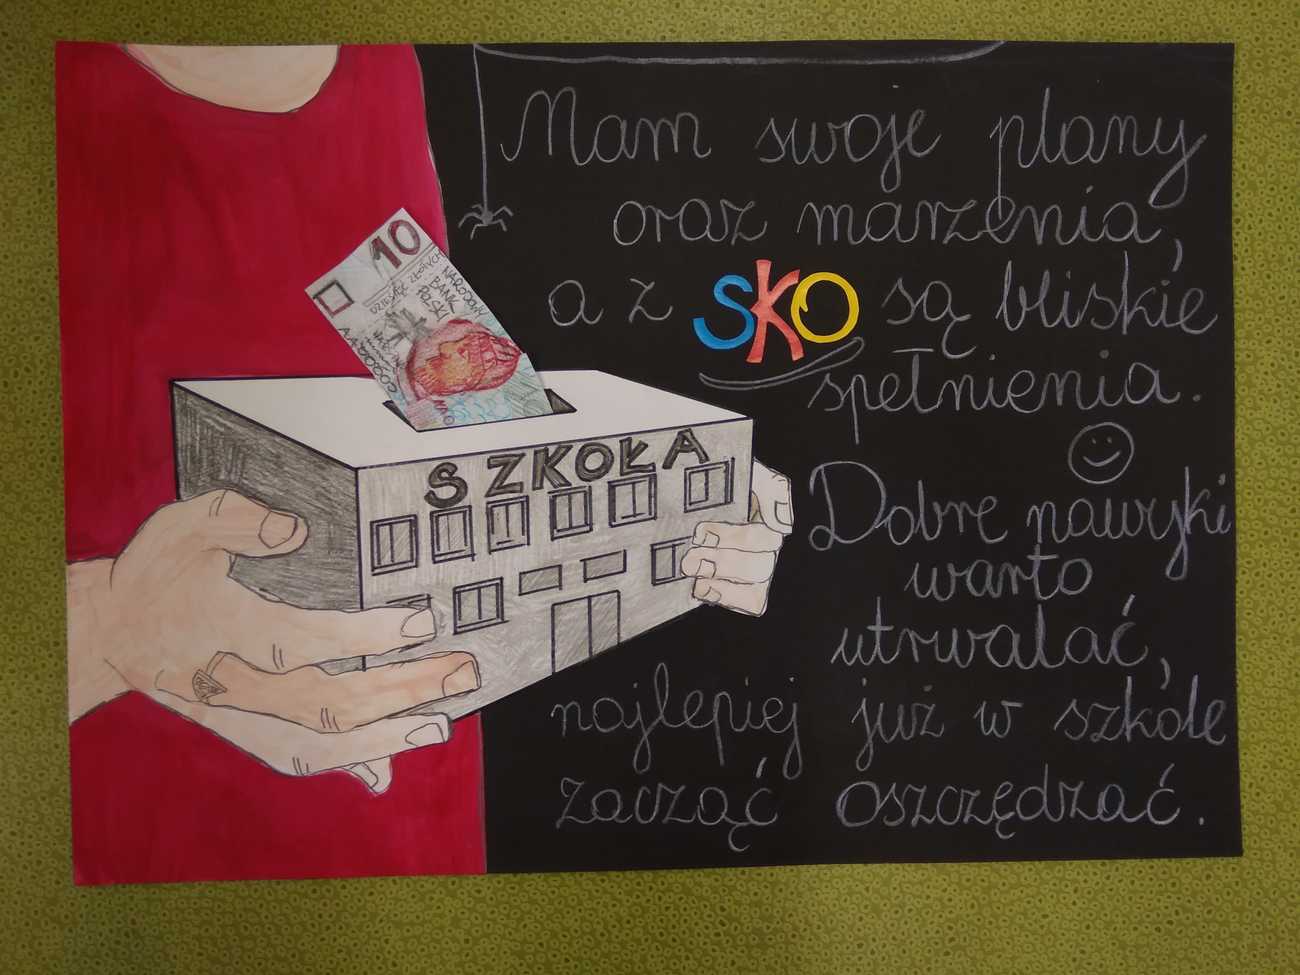 Mam swoje plany
oraz marzenia,
a z SKO są bliskie
spełnienia.
Dobre nawyki
warto
utrwalać,
najlepiej już w szkole
zacząć oszczędzać.
10
DZIESIĘĆ ZŁOTYCH
NARODOWY
BANK
POLSKI
SZKOŁA